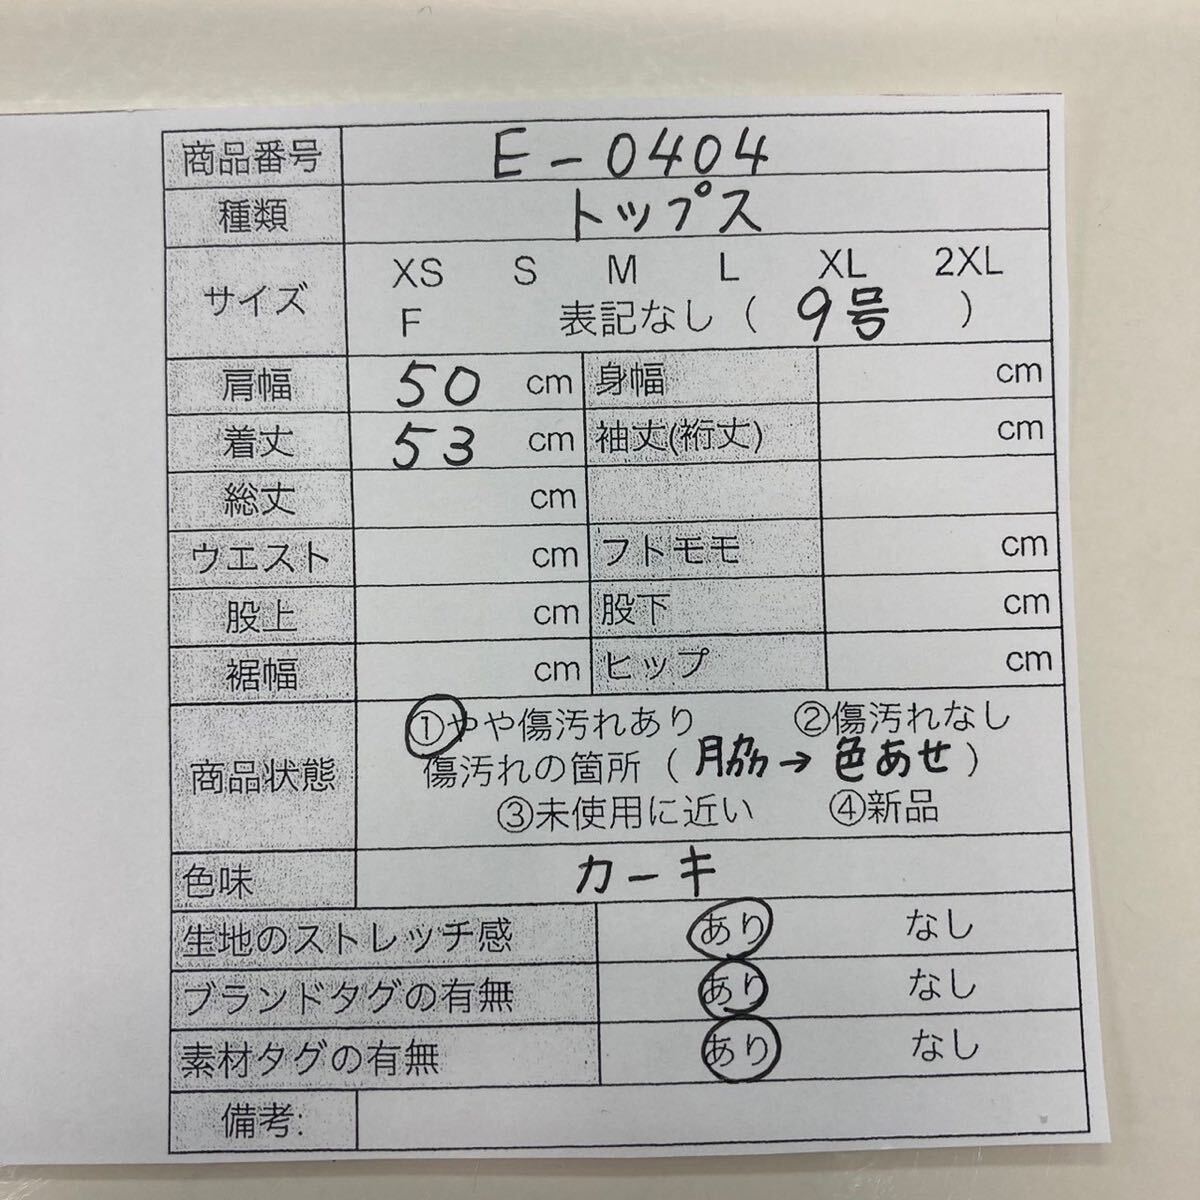 商品番号 E-0404
種類 トップス
サイズ XS S M L XL 2XL
F 表記なし ( 9号 )
肩幅 50 cm 身幅 cm
着丈 53 cm 袖丈(裄丈) cm
総丈 cm
ウエスト cm フトモモ cm
股上 cm 股下 cm
裾幅 cm ヒップ cm
商品状態 ①やや傷汚れあり ②傷汚れなし
傷汚れの箇所 ( 脇→色あせ )
③未使用に近い ④新品
色味 カーキ
生地のストレッチ感 あり なし
ブランドタグの有無 あり なし
素材タグの有無 あり なし
備考: